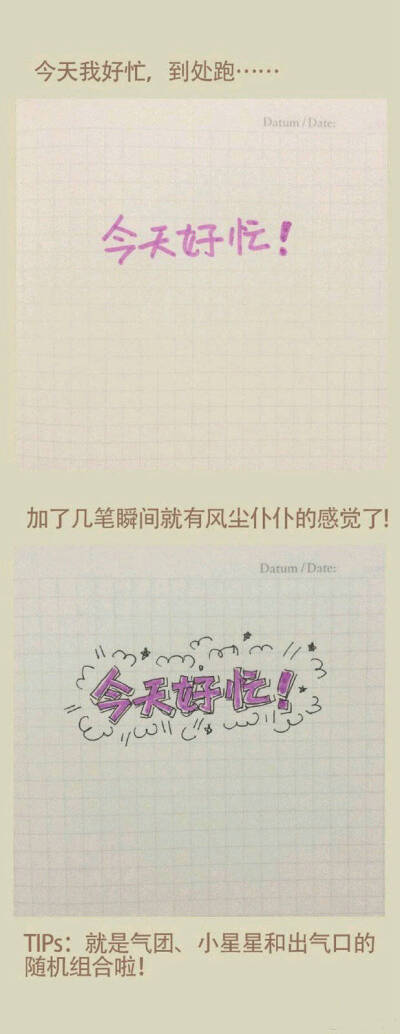 今天我好忙，到处跑……
Datum / Date:
今天好忙！
加了几笔瞬间就有风尘仆仆的感觉了！
Datum / Date:
今天好忙！
TIPs：就是气团、小星星和出气口的
随机组合啦！